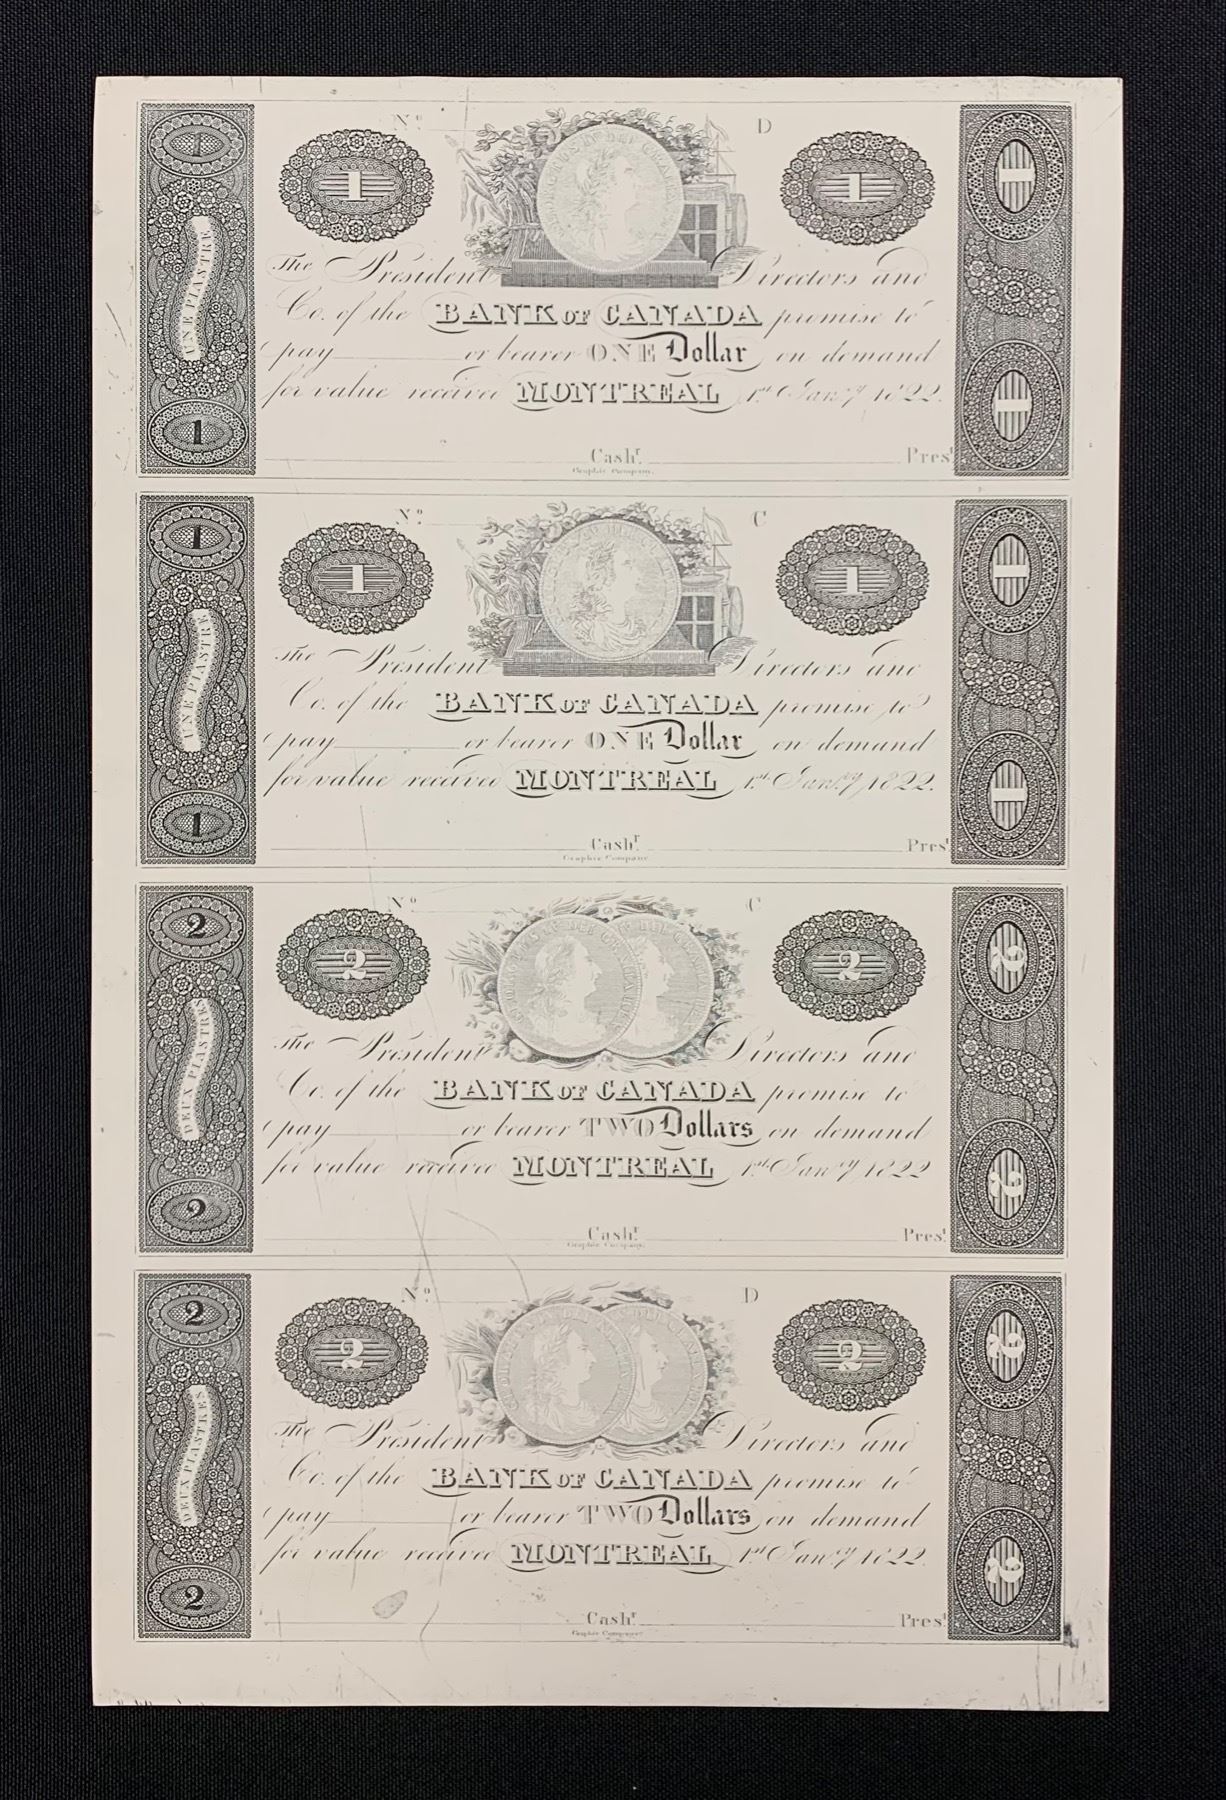 1
UNE PIASTRE
1
Nº
D
1
1
The President Directors and
Co. of the BANK OF CANADA promise to
pay or bearer ONE Dollar on demand
for value received MONTREAL 1st Jany 1822.
Cashr. Prest
Graphic Company.
1
1
1
UNE PIASTRE
1
Nº
C
1
1
The President Directors and
Co. of the BANK OF CANADA promise to
pay or bearer ONE Dollar on demand
for value received MONTREAL 1st Jany 1822.
Cashr. Prest
Graphic Company
1
1
2
DEUX PIASTRES
2
Nº
C
2
2
The President Directors and
Co. of the BANK OF CANADA promise to
pay or bearer TWO Dollars on demand
for value received MONTREAL 1st Jany 1822
Cashr. Prest
Graphic Company.
2
2
2
DEUX PIASTRES
2
Nº
D
2
2
The President Directors and
Co. of the BANK OF CANADA promise to
pay or bearer TWO Dollars on demand
for value received MONTREAL 1st Jany 1822.
Cashr. Prest
Graphic Company
2
2